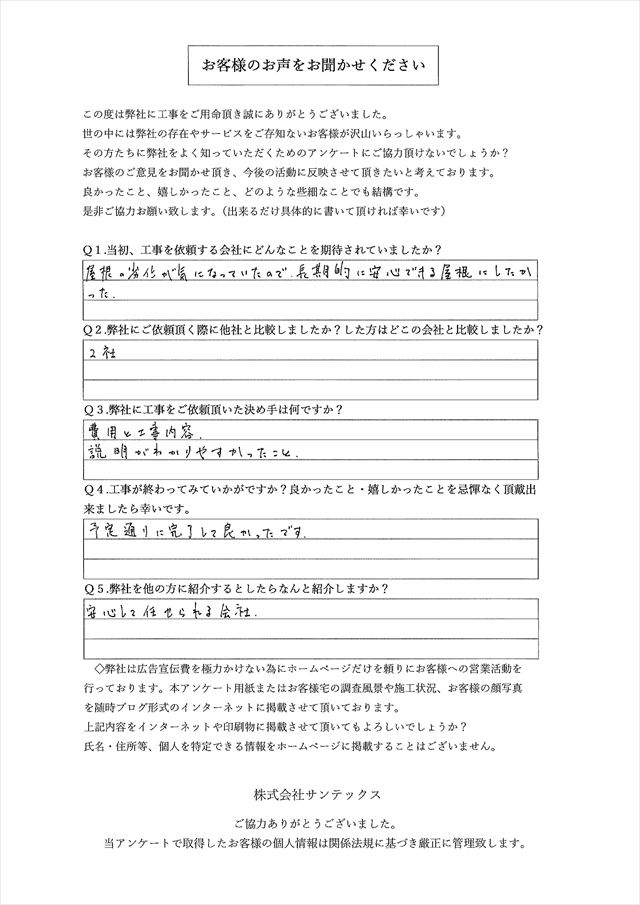 お客様のお声をお聞かせください
この度は弊社に工事をご用命頂き誠にありがとうございました。
世の中には弊社の存在やサービスをご存知ないお客様が沢山いらっしゃいます。
その方たちに弊社をよく知っていただくためのアンケートにご協力頂けないでしょうか？
お客様のご意見をお聞かせ頂き、今後の活動に反映させて頂きたいと考えております。
良かったこと、嬉しかったこと、どのような些細なことでも結構です。
是非ご協力お願い致します。（出来るだけ具体的に書いて頂ければ幸いです）
Q１.当初、工事を依頼する会社にどんなことを期待されていましたか？
屋根の劣化が気になっていたので、長期的に安心できる屋根にしたか
った.
Q２.弊社にご依頼頂く際に他社と比較しましたか？した方はどこの会社と比較しましたか？
2社
Q３.弊社に工事をご依頼頂いた決め手は何ですか？
費用と工事内容.
説明がわかりやすかったこと.
Q４.工事が終わってみていかがですか？良かったこと・嬉しかったことを忌憚なく頂戴出
来ましたら幸いです。
予定通りに完了して良かったです.
Q５.弊社を他の方に紹介するとしたらなんと紹介しますか？
安心して任せられる会社.
◇弊社は広告宣伝費を極力かけない為にホームページだけを頼りにお客様への営業活動を
行っております。本アンケート用紙またはお客様宅の調査風景や施工状況、お客様の顔写真
を随時ブログ形式のインターネットに掲載させて頂いております。
上記内容をインターネットや印刷物に掲載させて頂いてもよろしいでしょうか？
氏名・住所等、個人を特定できる情報をホームページに掲載することはございません。
株式会社サンテックス
ご協力ありがとうございました。
当アンケートで取得したお客様の個人情報は関係法規に基づき厳正に管理致します。